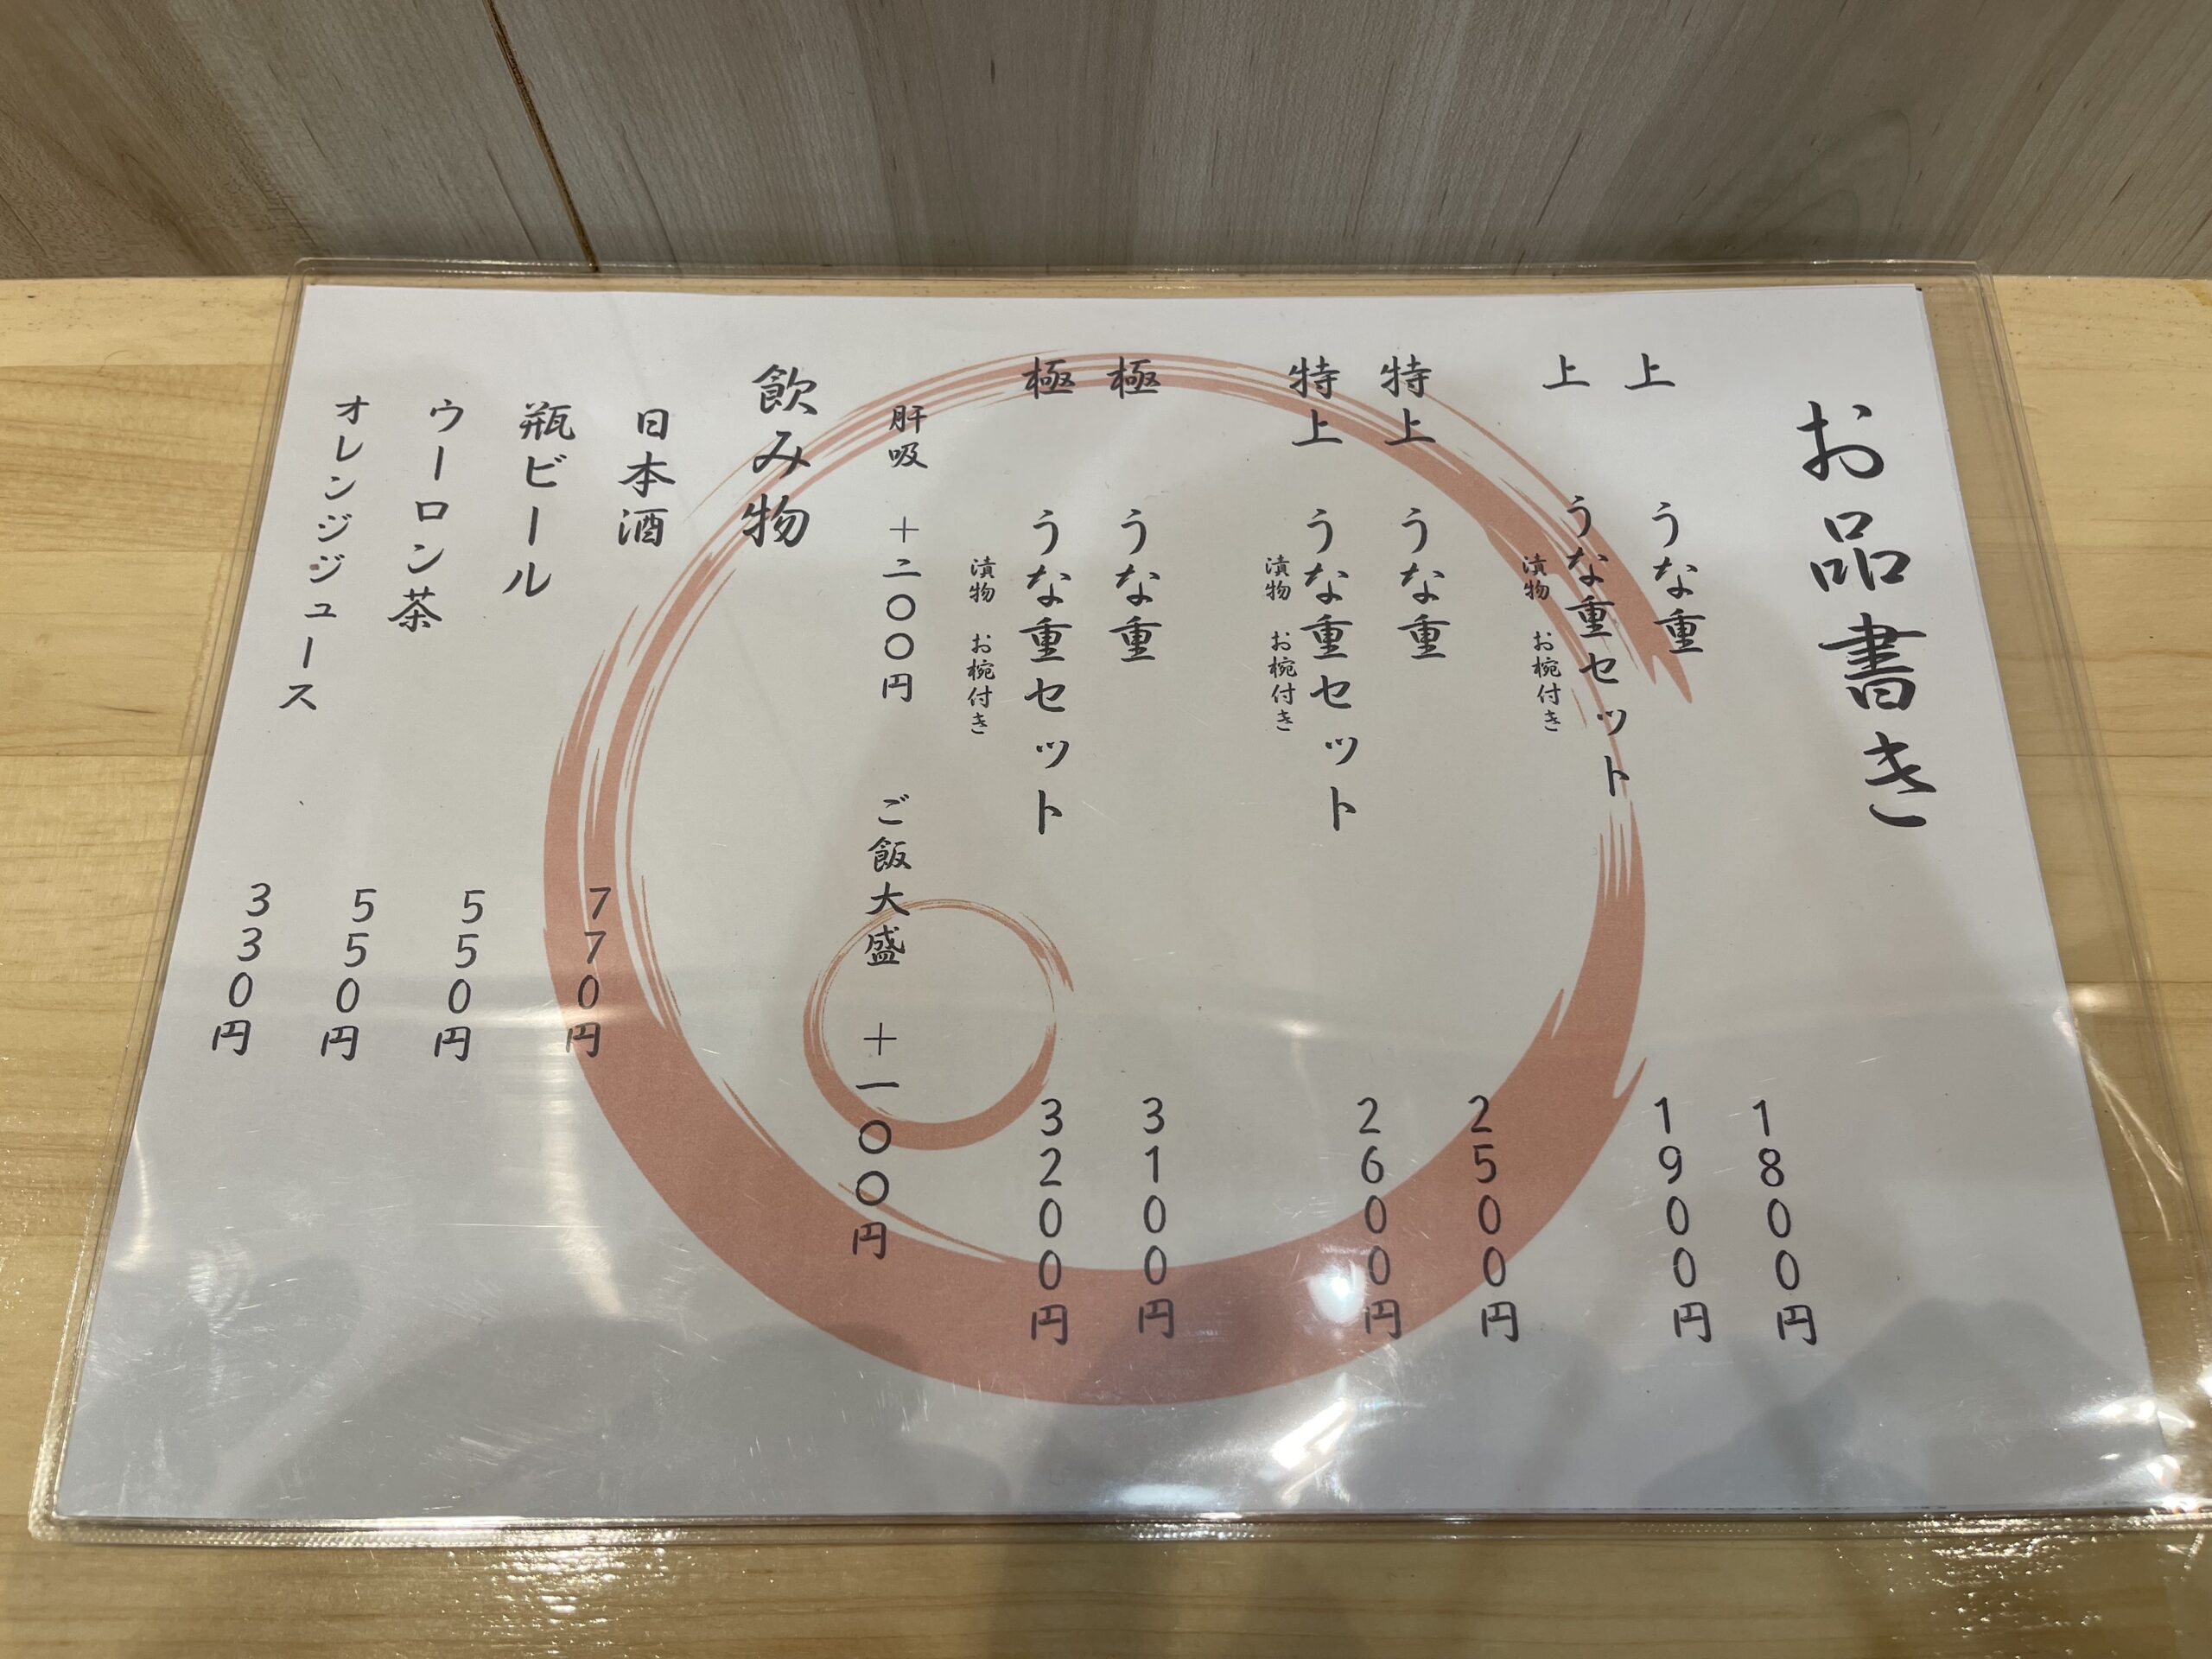 お品書き
上 うな重 1800円
上 うな重セット 1900円
漬物 お椀付き
特上 うな重 2500円
特上 うな重セット 2600円
漬物 お椀付き
極 うな重 3100円
極 うな重セット 3200円
漬物 お椀付き
肝吸 +二〇〇円 ご飯大盛 +一〇〇円
飲み物
日本酒 770円
瓶ビール 550円
ウーロン茶 550円
オレンジジュース 330円